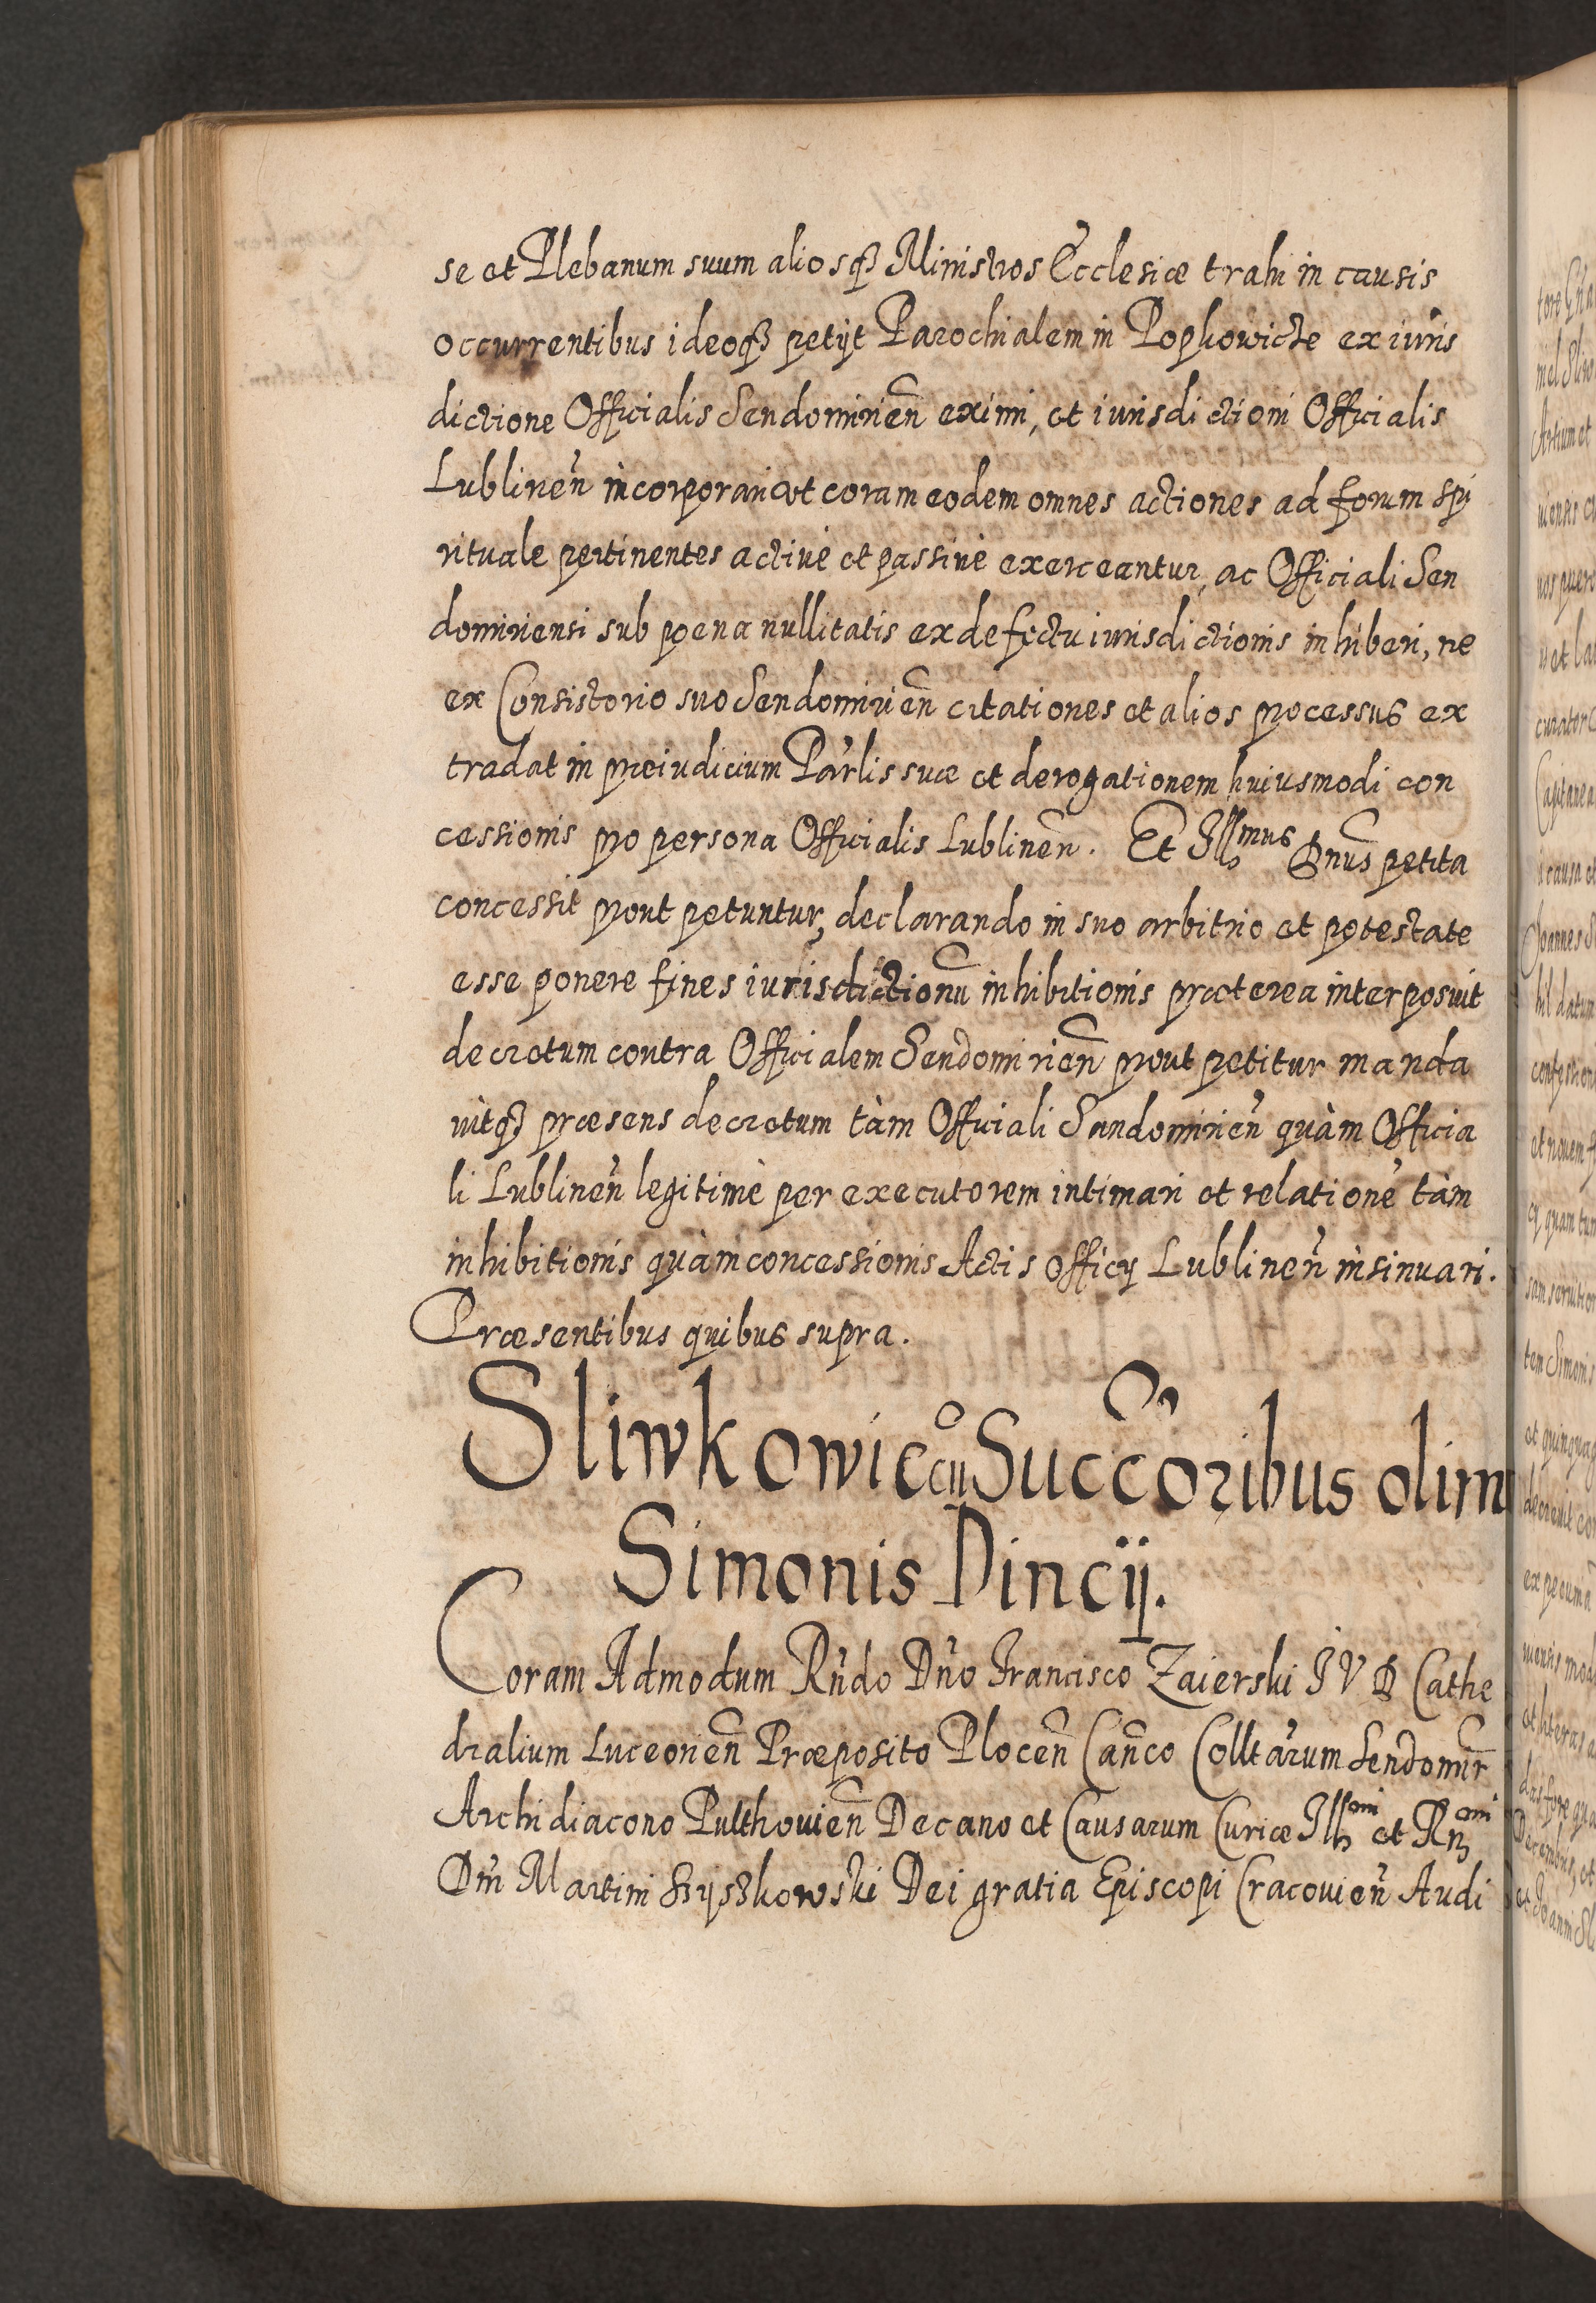 se et Plebanum suum aliosq₃ Ministros Ecclesiæ trahi in causis
occurrentibus ideoq₃ petijt Parochialem in Popkowicze ex iuris
dictione Officialis Sendomirien̄ eximi, et iurisdictioni Officialis
Lublinen̄ incorporari et coram eodem omnes actiones ad forum spi
rituale pertinentes actiuè et passiuè exerceantur, ac Officiali Sen
domiriensi sub poena nullitatis ex defectu iurisdictionis inhiberi, ne
ex Consistorio suo Sendomirien̄ citationes et alios processus ex
tradat in præiudicium Par̄lis suæ et derogationem huiusmodi con
cessionis pro persona Officialis Lublinen̄. Et Illmus Dnūs petita
concessit prout petuntur, declarando in suo arbitrio et potestate
esse ponere fines iurisdictionū inhibitionis præterea interposuit
decretum contra Officialem Sendomirien̄ prout petitur manda
uitq₃ præsens decretum tàm Officiali Sandomirien̄ quàm Officia
li Lublinen̄ legitimè per executorem intimari et relationē tàm
inhibitionis quàm concessionis Actis officij Lublinen̄ insinuari.
Præsentibus quibus supra.
Sliwkowic cū Succ̄oribus olim
Simonis Dincij.
Coram Admodum Rn̄do Dn̄o Francisco Zaierski I V D Cathe
dralium Luceorien̄ Præposito Plocen̄ Can̄co Colltārum Sendomir̄
Archidiacono Pulthouien̄ Decano et Causarum Curiæ Illmi et Rmi
Dn̄i Martini Szyszkowski Dei gratia Episcopi Cracouien̄ Audi